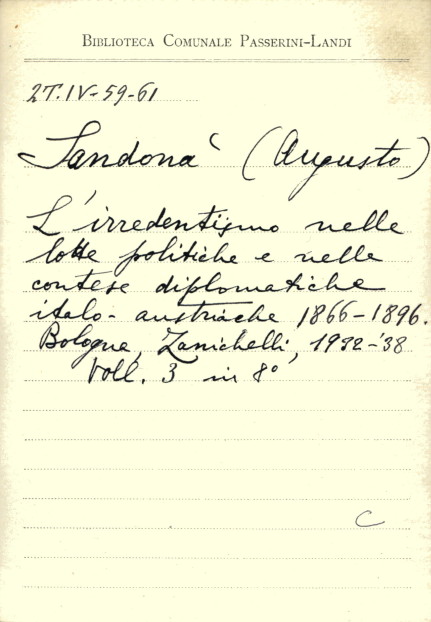 BIBLIOTECA COMUNALE PASSERINI-LANDI
2T.IV-59-61
Sandonà (Augusto)
L'irredentismo nelle
lotte politiche e nelle
contese diplomatiche
italo-austriache 1866-1896.
Bologna, Zanichelli, 1932-'38
Voll. 3 in 8°
C